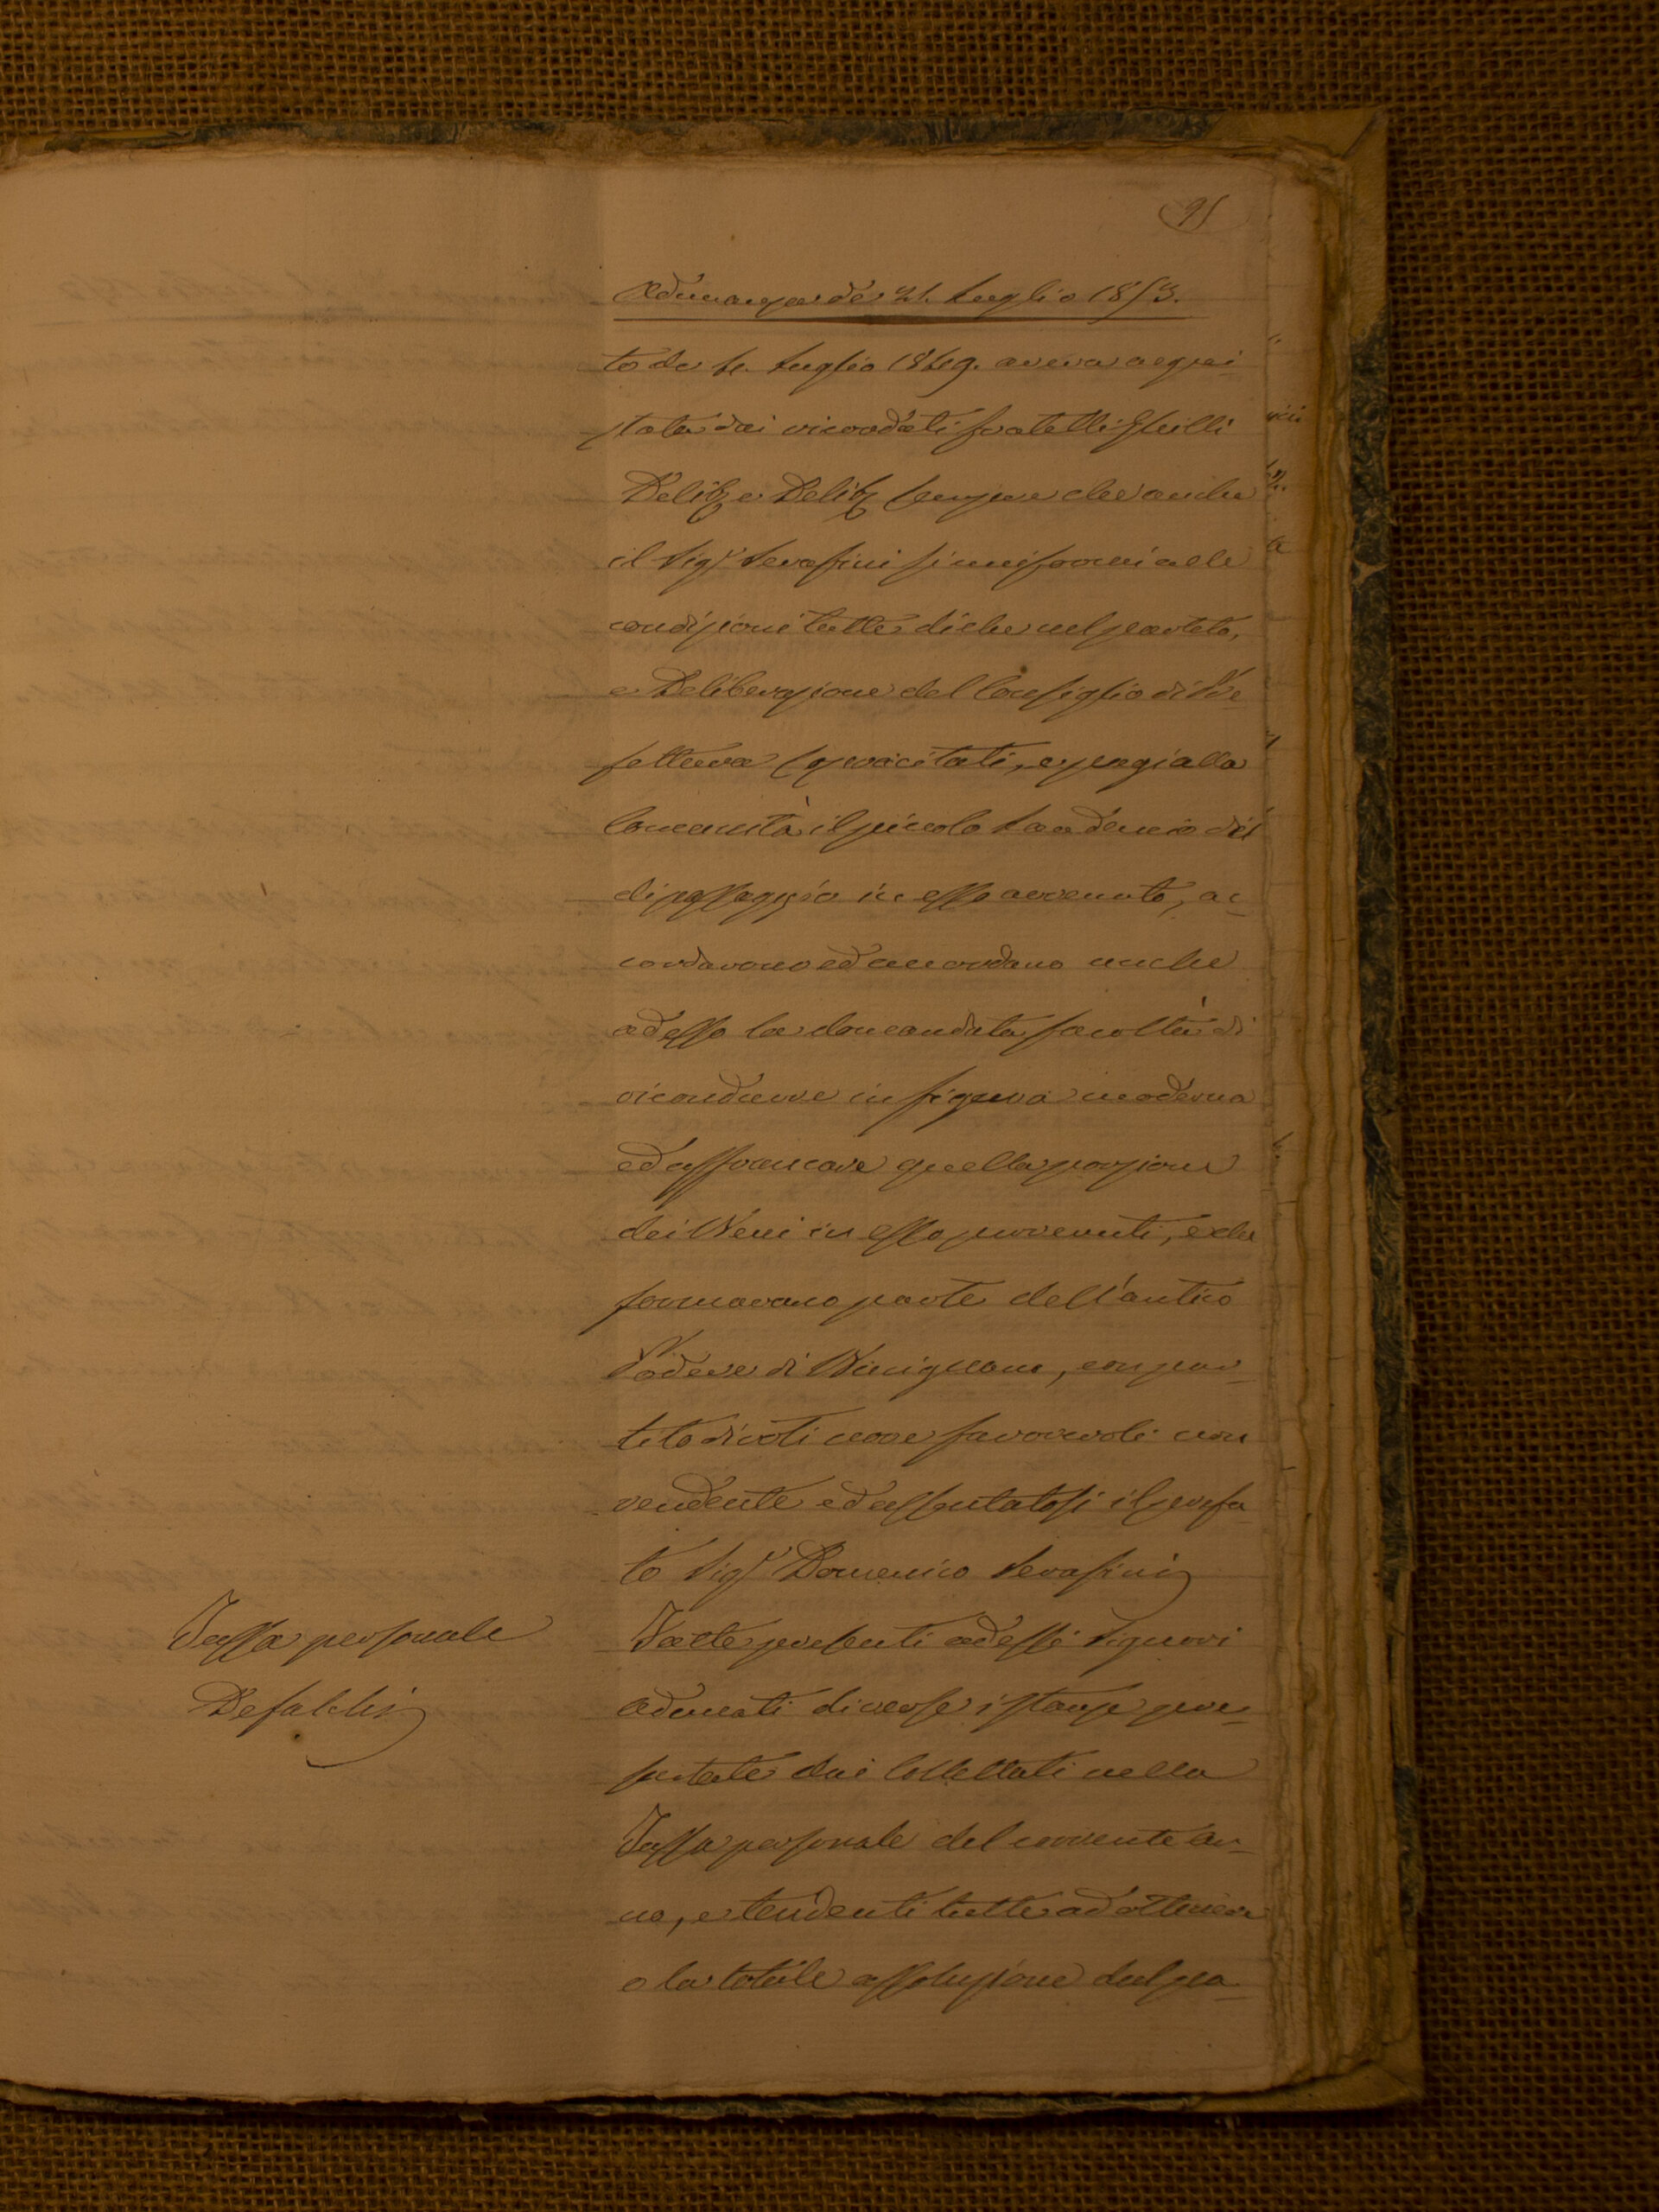 95
Adunanza de' 21. Luglio 1853.
to de 4. Luglio 1849. aveva acqui-
stata dai ricordati fratelli Grilli
Delib.e Delib. sempre che anche
il Sig.r Serafini si uniformi alle
condizioni tutte di che nel partito,
e Deliberazione del Consiglio di Pre-
fettura precitati, e paghi alla
Comunità il piccolo Laudemio del
di passaggio in esso avvenuto, ac-
cordarono ed accordano anche
ad esso la domandata facoltà di
ricondurre in figura moderna
ed affrancare quella porzione
dei Beni in esso pervenuti, e che
formavano parte dell'antico
Podere di, con par-
tito di voti nove favorevoli non
rendente ed assentatosi il prefa-
to Sig.r Domenico Serafini
Tassa personale
Defalchi
Fatte presenti ad essi Signori
adunati diverse istanze pre-
sentate dai Collettati nella
Tassa personale del corrente an-
no, e tendenti tutte ad ottenere
o la totale assoluzione dal pa-